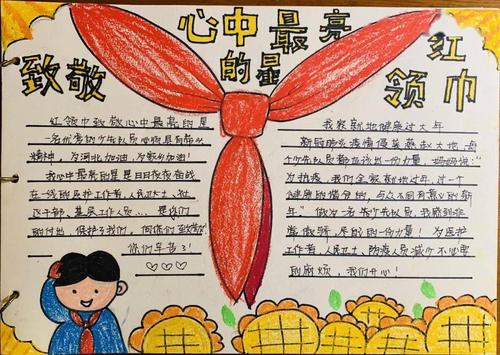 心中最亮
的星
致敬
红
领巾
红领巾致敬心中最亮的星
一名优秀的少先队员心向具有奉献
精神,为河北加油,为家乡加油!
我心中最亮的星是日日夜夜奋战
在一线的医护工作者、人民卫士、社
区干部、基层工作人员... 是你们
的付出,保护了我们,向你们致敬!
你们辛苦了!
我家就地健康过大年
新冠肺炎疫情侵袭燕赵大地,每
个少先队员都应该出一份力量,妈妈说:"
为抗疫,我们全家就地过年,过一个
健康的有分的,与众不同有意义的新
年"做为一名少先队员,我感到非
常激动,尽自己的一份力量!为医护
工作者、人民卫士、防疫人员减少不必要
的麻烦,我们开心!